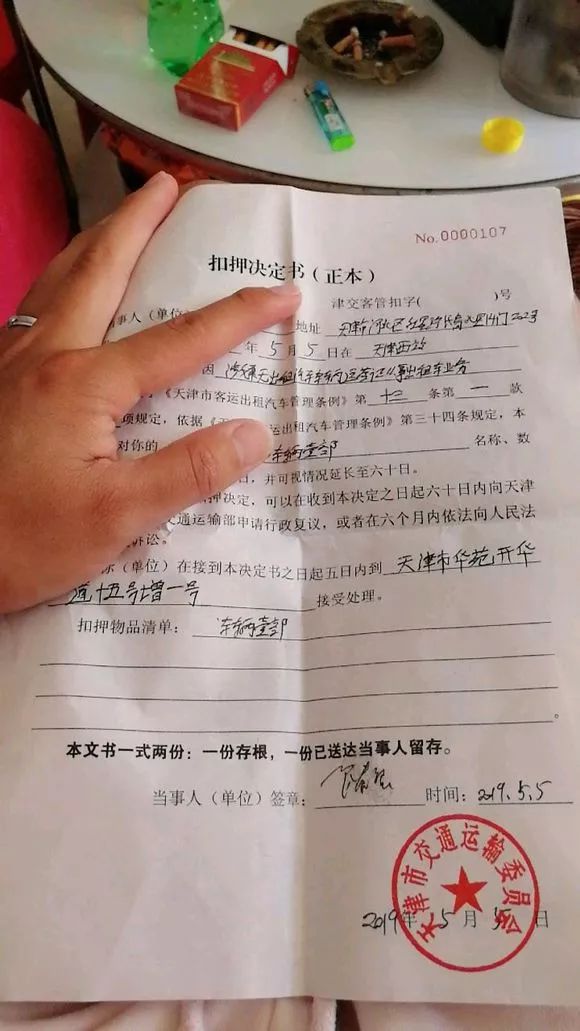 No.0000107
扣押决定书（正本）
津交客管扣字( )号
事人（单位） 地址 天津
年5月5日在 天津西站
因 涉嫌无出租汽车车辆运营证从事出租车业务
《天津市客运出租汽车管理条例》第 十二 条第 一 款
项规定，依据《 运出租汽车管理条例》第三十四条规定，本
对你的 车辆壹部 名称、数
日，并可视情况延长至六十日。
押决定，可以在收到本决定之日起六十日内向天津
通运输部申请行政复议，或者在六个月内依法向人民法
诉讼。
你（单位）在接到本决定书之日起五日内到 天津市华苑开华
道十五号增一号 接受处理。
扣押物品清单： 车辆壹部
。
本文书一式两份：一份存根，一份已送达当事人留存。
当事人（单位）签章： 时间：2019.5.5
天津市交通运输委员会
2019年5月5日